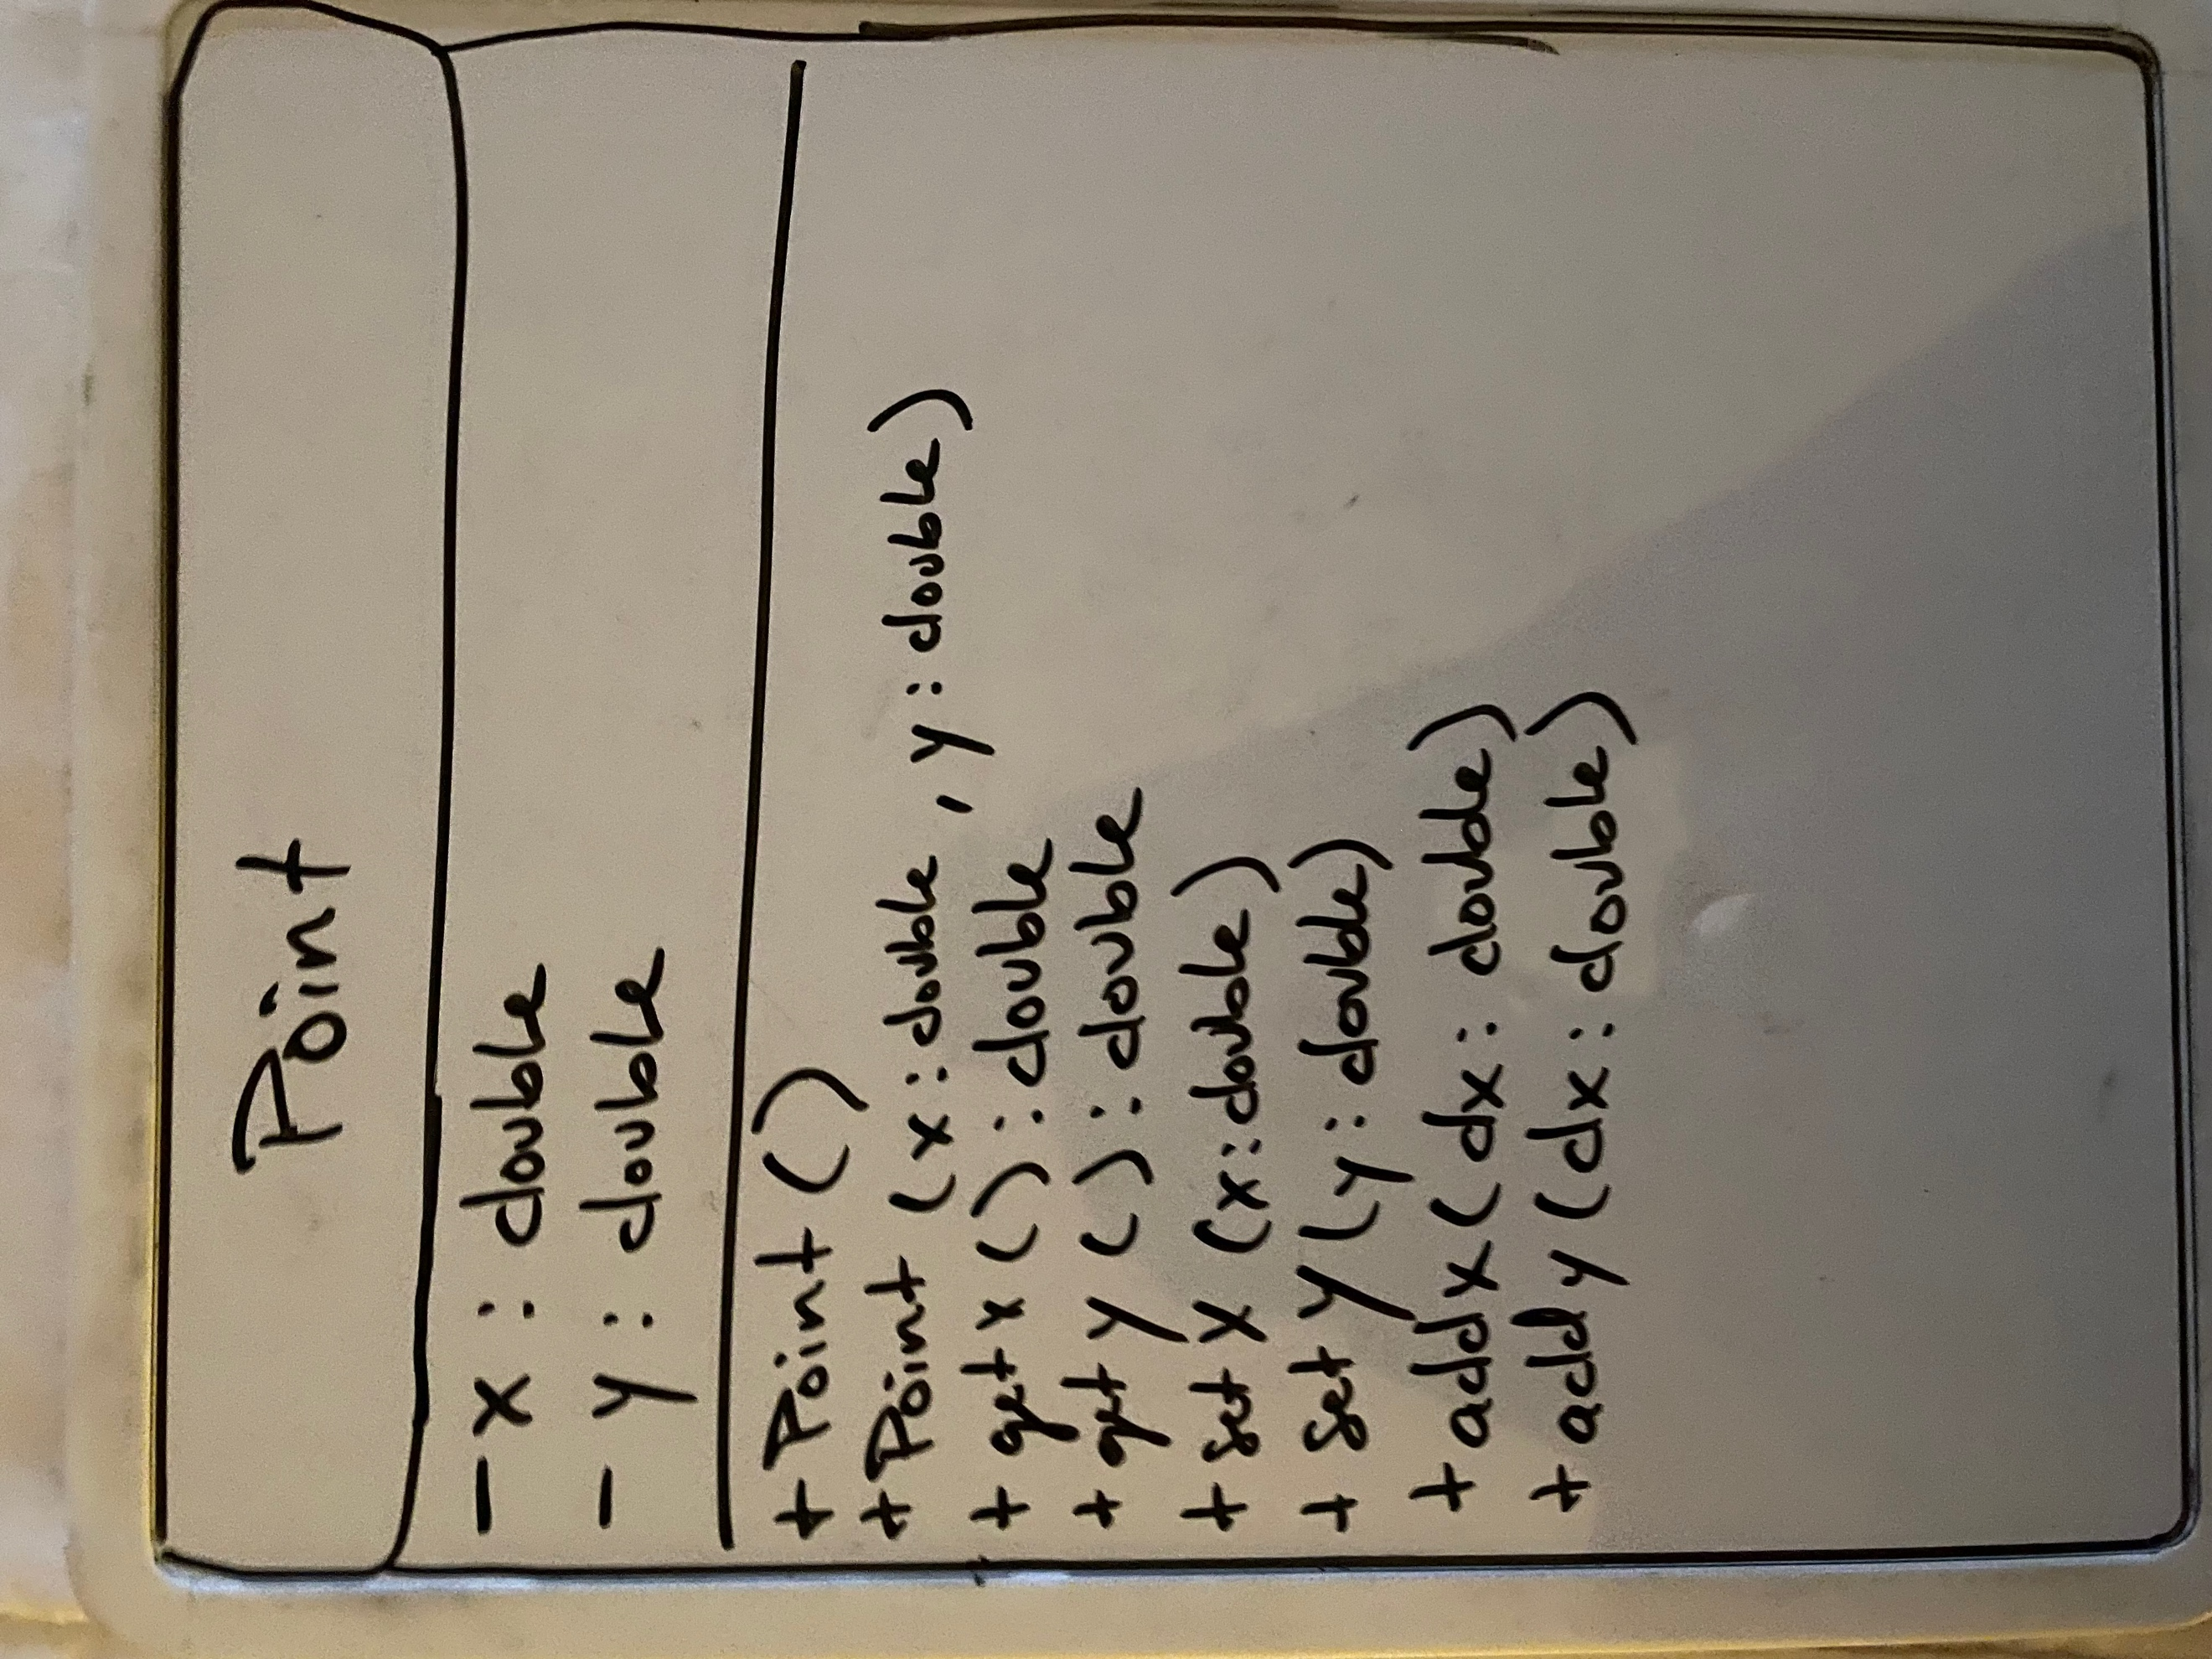 Point
- x : double
- y : double
+ Point ()
+ Point (x : double , y : double)
+ getx () : double
+ gety () : double
+ setx (x : double)
+ sety (y : double)
+ addx (dx : double)
+ addy (dx : double)